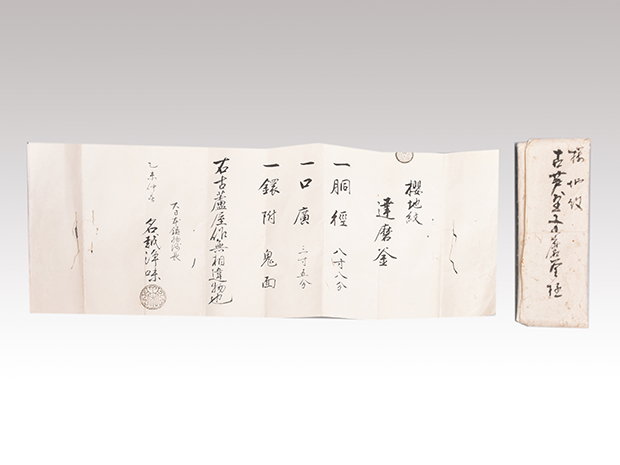 櫻地紋
達磨釜
一胴徑 八寸八分
一口廣 三寸五分
一鐶附 鬼面
右古蘆屋作無相違物也
乙未仲冬
大日本鋳物師長
名越浄味
桜地紋
古芦屋達磨釜極